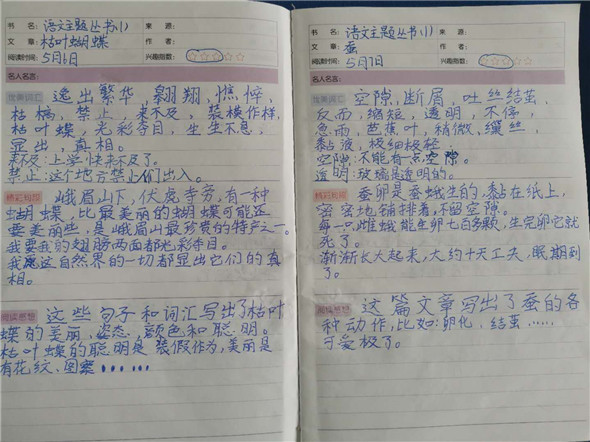 书 名：语文主题丛书(1) 来 源：
文 章：枯叶蝴蝶 作 者：
阅读时间：5月6日 兴趣指数：☆☆☆☆☆
名人名言：
优美词汇
逸出繁华 翱翔，憔悴，
枯槁，禁止，来不及，装模作样，
枯叶蝶，光彩夺目，生生不息，
显出，真相。
来不及：上学快来不及了。
禁止：这个地方禁止他们出入。
精彩句段
峨眉山下，伏虎寺旁，有一种
蝴蝶，比最美丽的蝴蝶可能还
要美丽些，是峨眉山最珍贵的特产之一。
我要我的翅膀两面都光彩夺目。
我愿这自然界的一切都显出它们的真
相。
阅读感想
这些句子和词汇写出了枯叶
蝶的美丽、姿态、颜色和聪明。
枯叶蝶的聪明是装假作为，美丽是
有花纹、图案……
书 名：语文主题丛书(1) 来 源：
文 章：蚕 作 者：
阅读时间：5月7日 兴趣指数：☆☆☆☆☆
名人名言：
优美词汇
空隙，断屑 吐丝结茧，
反而，缩短，透明，不停，
急雨，芭蕉叶，稍微，缫丝，
黏液，极细极轻
空隙：不能有一点空隙。
透明：玻璃是透明的。
精彩句段
蚕卵是蚕蛾生的，黏在纸上，
密密地铺排着，不留空隙。
每一只雌蛾能生卵七百多颗，生完卵它就
死了。
渐渐长大起来，大约十天工夫，眠期到
了。
阅读感想
这篇文章写出了蚕的各
种动作，比如：孵化、结茧……
可爱极了。